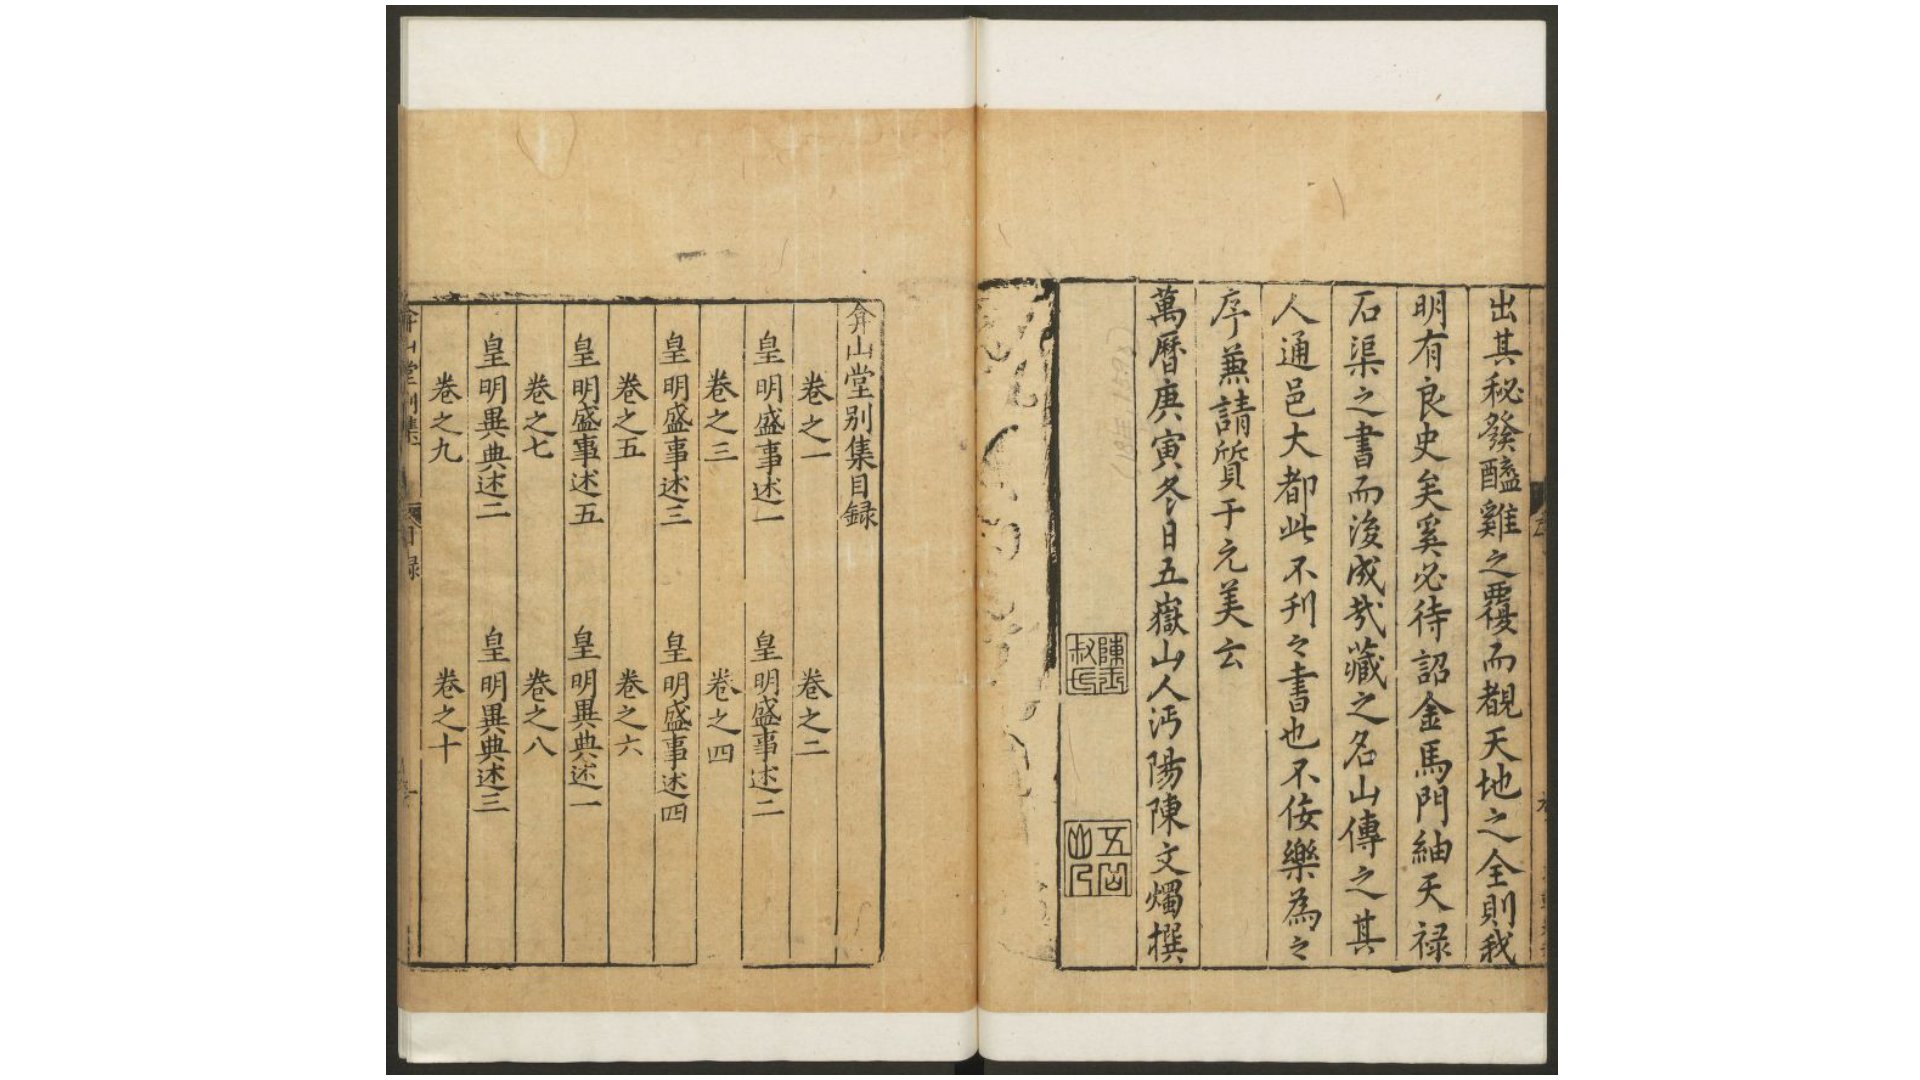 出其秘發醯雞之覆而覩天地之全則我
明有良史矣奚必待詔金馬門紬天禄
石渠之書而後成㦲藏之名山傳之其
人通邑大都此不刋之書也不佞樂為之
序蒹請質于元美云
萬曆庚寅冬日五嶽山人沔陽陳文燭撰
陳玉叔氏
五岳山人
弇山堂别集目録
卷之一　卷之二
皇明盛事述一　皇明盛事述二
卷之三　卷之四
皇明盛事述三　皇明盛事述四
卷之五　卷之六
皇明盛事述五　皇明異典述一
卷之七　卷之八
皇明異典述二　皇明異典述三
卷之九　卷之十
弇山堂別集　目録　一